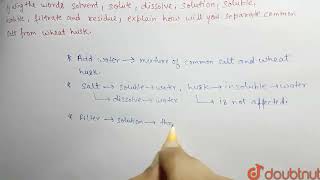 Using the words solvent, solute, dissolve, solution, soluble,
soluble, filtrate and residue, explain how will you separate common
salt from wheat husk.
* Add water → mixture of common salt and wheat
husk.
* Salt → soluble → water, husk → insoluble → water
↳ dissolve → water ↳ is not affected.
* Filter → solution → the
doubtnut